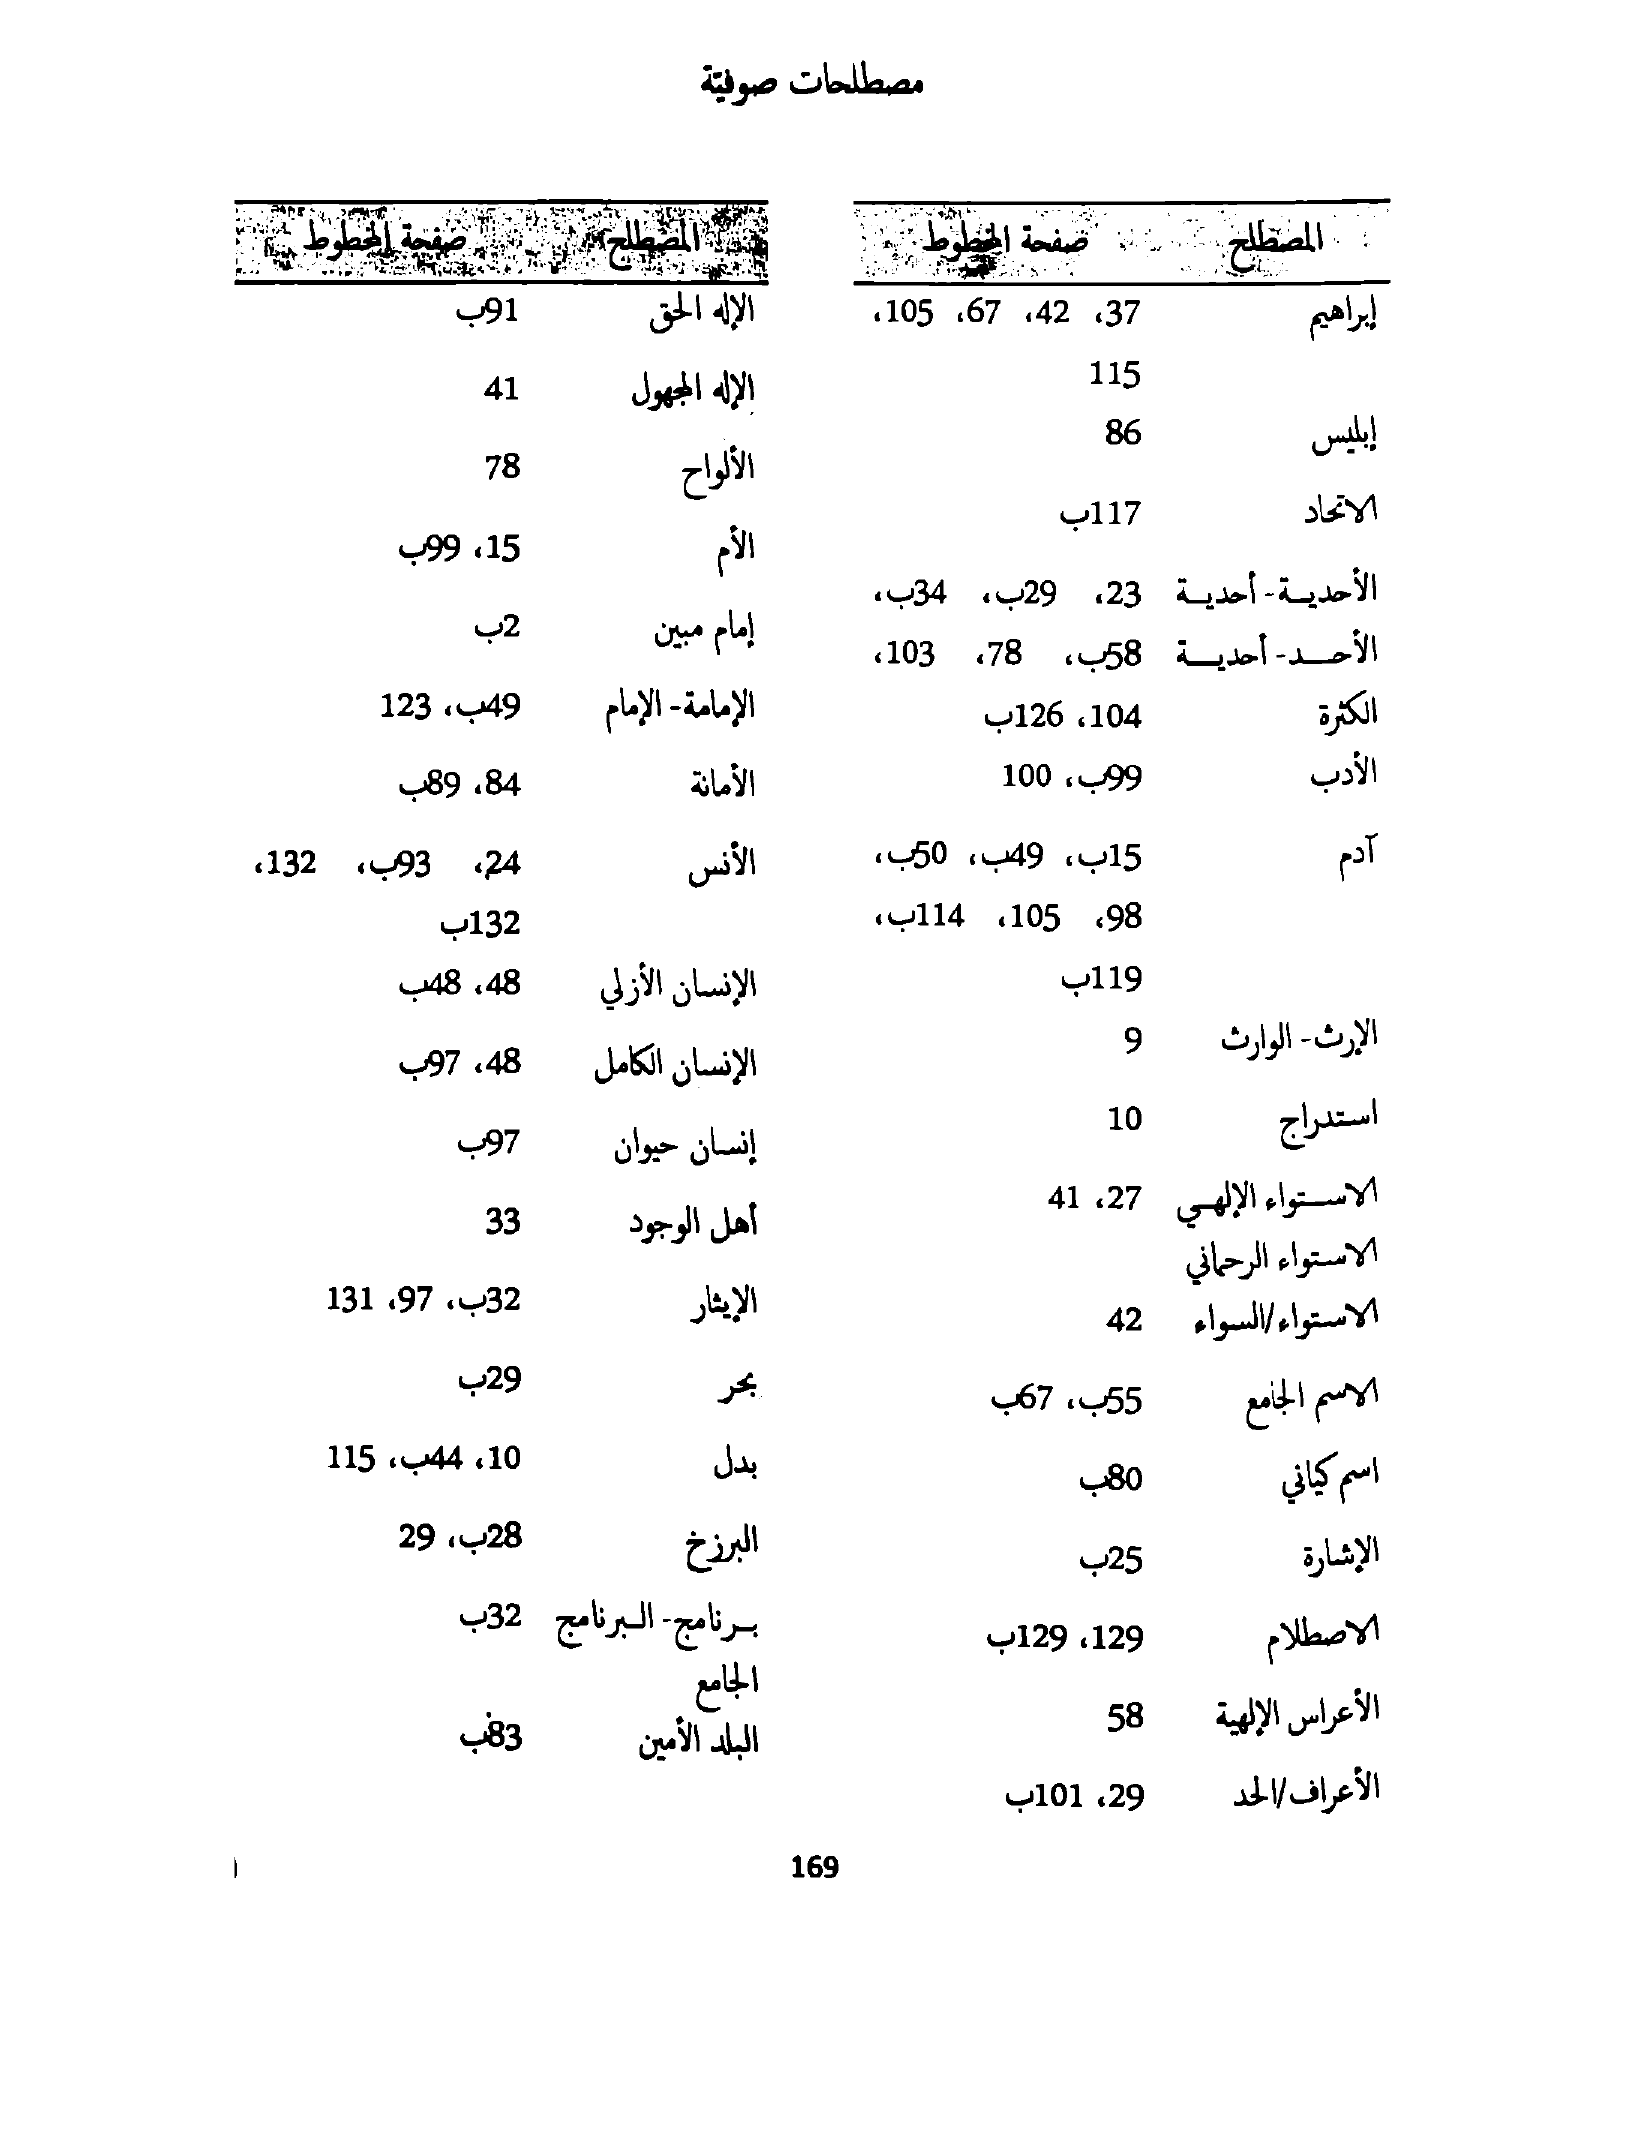 مصطلحات صوفيّة
المصطلح صفحة المخطوط
إبراهيم 37، 42، 67، 105،
115
إبليس 86
الاتحاد 117ب
الأحدية- أحدية 23، 29ب، 34ب،
الأحد- أحدية 58ب، 78، 103،
الكثرة 104، 126ب
الأدب 99ب، 100
آدم 15ب، 49ب، 50ب،
98، 105، 114ب،
119ب
الإرث- الوارث 9
استدراج 10
الاستواء الإلهي 27، 41
الاستواء الرحماني
الاستواء/السواء 42
الاسم الجامع 55ب، 67ب
اسم كياني 80ب
الإشارة 25ب
الاصطلام 129، 129ب
الأعراس الإلهية 58
الأعراف/الحد 29، 101ب
المصطلح صفحة المخطوط
الإله الحق 91ب
الإله المجهول 41
الألواح 78
الأم 15، 99ب
إمام مبين 2ب
الإمامة- الإمام 49ب، 123
الأمانة 84، 89ب
الأنس 24، 93ب، 132،
132ب
الإنسان الأزلي 48، 48ب
الإنسان الكامل 48، 97ب
إنسان حيوان 97ب
أهل الوجود 33
الإيثار 32ب، 97، 131
بحر 29ب
بدل 10، 44ب، 115
البرزخ 28ب، 29
برنامج- البرنامج 32ب
الجامع
البلد الأمين 83ب
169